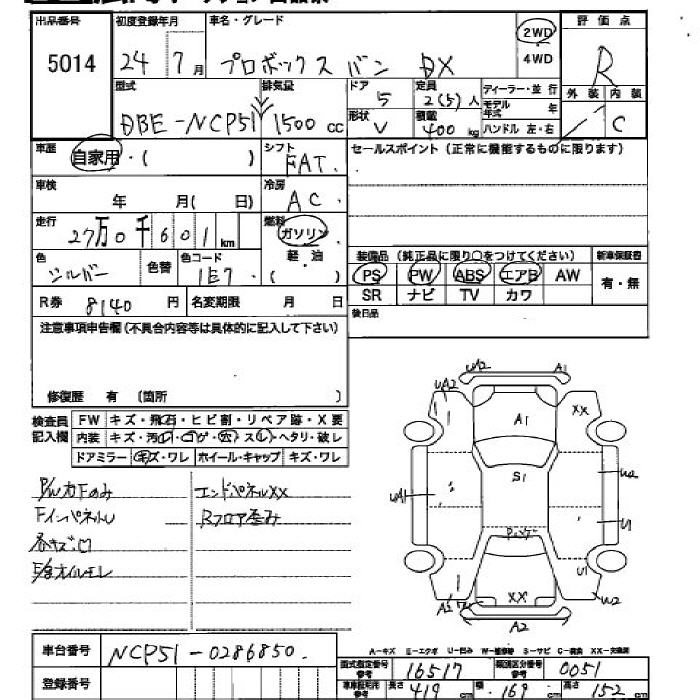 出品番号 初度登録年月 車名・グレード 2WD 評価点
5014 24 年 7月 プロボックス バン DX 4WD R
型式 排気量 ドア 5 定員 2(5)人 ディーラー・並行 外装 内装
DBE-NCP51 1500cc 形状 V 積載 400kg モデル年式 年 ハンドル 左・右 C
車歴 自家用・( ) シフト FAT セールスポイント(正常に機能するものに限ります)
車検 年 月( 日) 冷房 AC
走行 27万0千601km 燃料 ガソリン
軽・油 装備品(純正品に限り○をつけてください) 新車保証書
色 シルバー 色替 色コード 1E7 ( ) PS PW ABS エアB AW 有・無
R券 8140円 名変期限 月 日 SR ナビ TV カワ
注意事項申告欄(不具合内容等は具体的に記入して下さい) 後日品
修復歴 有 (箇所 )
検査員記入欄 FW キズ・飛石・ヒビ割・リペア跡・X要
内装 キズ・汚・コゲ・穴・スレ・ヘタリ・破レ
ドアミラー キズ・ワレ ホイール・キャップ キズ・ワレ
UA2 A1
UA2 XX
A1
S1 U2
UA1
U1
U1
XX U2
A2
P/W力Fのみ エンドパネルXX
FインパネルU Rフロア歪み
各キズ凹
E/G オイルモレ
車台番号 NCP51-0286850
A-キズ E-エクボ U-凹み W-補修跡 S-サビ C-腐食 XX-交換済
登録番号 型式指定番号 参考 16517 類別区分番号 参考 0051
長さ 419cm 幅 169cm 高さ 152cm